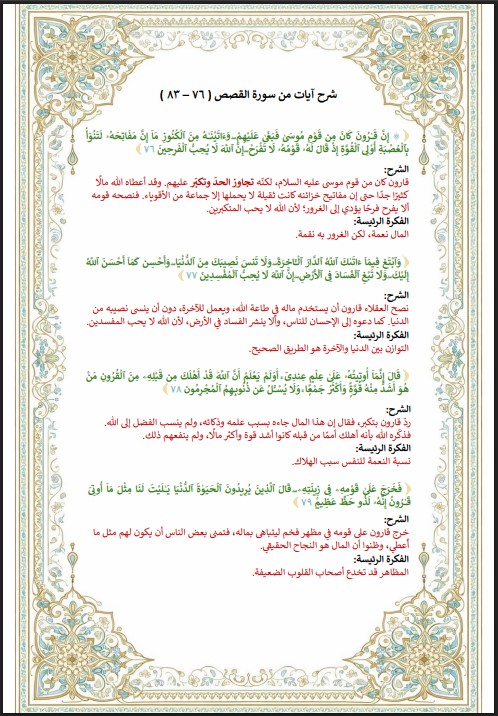 شرح آيات من سورة القصص ( ٧٦ – ٨٣ )
﴿ ۞ إِنَّ قَـٰرُونَ كَانَ مِن قَوْمِ مُوسَىٰ فَبَغَىٰ عَلَيْهِمْ ۖ وَءَاتَيْنَـٰهُ مِنَ ٱلْكُنُوزِ مَآ إِنَّ مَفَاتِحَهُۥ لَتَنُوٓأُ
بِٱلْعُصْبَةِ أُو۟لِى ٱلْقُوَّةِ إِذْ قَالَ لَهُۥ قَوْمُهُۥ لَا تَفْرَحْ ۖ إِنَّ ٱللَّهَ لَا يُحِبُّ ٱلْفَرِحِينَ ٧٦ ﴾
الشرح:
قارون كان من قوم موسى عليه السلام، لكنّه تجاوز الحدّ وتكبّر عليهم. وقد أعطاه الله مالًا
كثيرًا جدًا حتى إن مفاتيح خزائنه كانت ثقيلة لا يحملها إلا جماعة من الأقوياء. فنصحه قومه
ألا يفرح فرحًا يؤدي إلى الغرور؛ لأن الله لا يحب المتكبرين.
الفكرة الرئيسة:
المال نعمة، لكن الغرور به نقمة.
﴿ وَٱبْتَغِ فِيمَآ ءَاتَىٰكَ ٱللَّهُ ٱلدَّارَ ٱلْـَٔاخِرَةَ ۖ وَلَا تَنسَ نَصِيبَكَ مِنَ ٱلدُّنْيَا ۖ وَأَحْسِن كَمَآ أَحْسَنَ ٱللَّهُ
إِلَيْكَ ۖ وَلَا تَبْغِ ٱلْفَسَادَ فِى ٱلْأَرْضِ ۖ إِنَّ ٱللَّهَ لَا يُحِبُّ ٱلْمُفْسِدِينَ ٧٧ ﴾
الشرح:
نصح العقلاء قارون أن يستخدم ماله في طاعة الله، ويعمل للآخرة، دون أن ينسى نصيبه من
الدنيا. كما دعوه إلى الإحسان للناس، وألا ينشر الفساد في الأرض، لأن الله لا يحب المفسدين.
الفكرة الرئيسة:
التوازن بين الدنيا والآخرة هو الطريق الصحيح.
﴿ قَالَ إِنَّمَآ أُوتِيتُهُۥ عَلَىٰ عِلْمٍ عِندِىٓ ۚ أَوَلَمْ يَعْلَمْ أَنَّ ٱللَّهَ قَدْ أَهْلَكَ مِن قَبْلِهِۦ مِنَ ٱلْقُرُونِ مَنْ
هُوَ أَشَدُّ مِنْهُ قُوَّةً وَأَكْثَرُ جَمْعًا ۚ وَلَا يُسْـَٔلُ عَن ذُنُوبِهِمُ ٱلْمُجْرِمُونَ ٧٨ ﴾
الشرح:
ردّ قارون بتكبر، فقال إن هذا المال جاءه بسبب علمه وذكائه، ولم ينسب الفضل إلى الله.
فذكّره الله بأنه أهلك أممًا من قبله كانوا أشد قوة وأكثر مالًا، ولم ينفعهم ذلك.
الفكرة الرئيسة:
نسبة النعمة للنفس سبب الهلاك.
﴿ فَخَرَجَ عَلَىٰ قَوْمِهِۦ فِى زِينَتِهِۦ ۖ قَالَ ٱلَّذِينَ يُرِيدُونَ ٱلْحَيَوٰةَ ٱلدُّنْيَا يَـٰلَيْتَ لَنَا مِثْلَ مَآ أُوتِىَ
قَـٰرُونُ إِنَّهُۥ لَذُو حَظٍّ عَظِيمٍ ٧٩ ﴾
الشرح:
خرج قارون على قومه في مظهر فخم ليتباهى بماله، فتمنى بعض الناس أن يكون لهم مثل ما
أُعطي، وظنوا أن المال هو النجاح الحقيقي.
الفكرة الرئيسة:
المظاهر قد تخدع أصحاب القلوب الضعيفة.